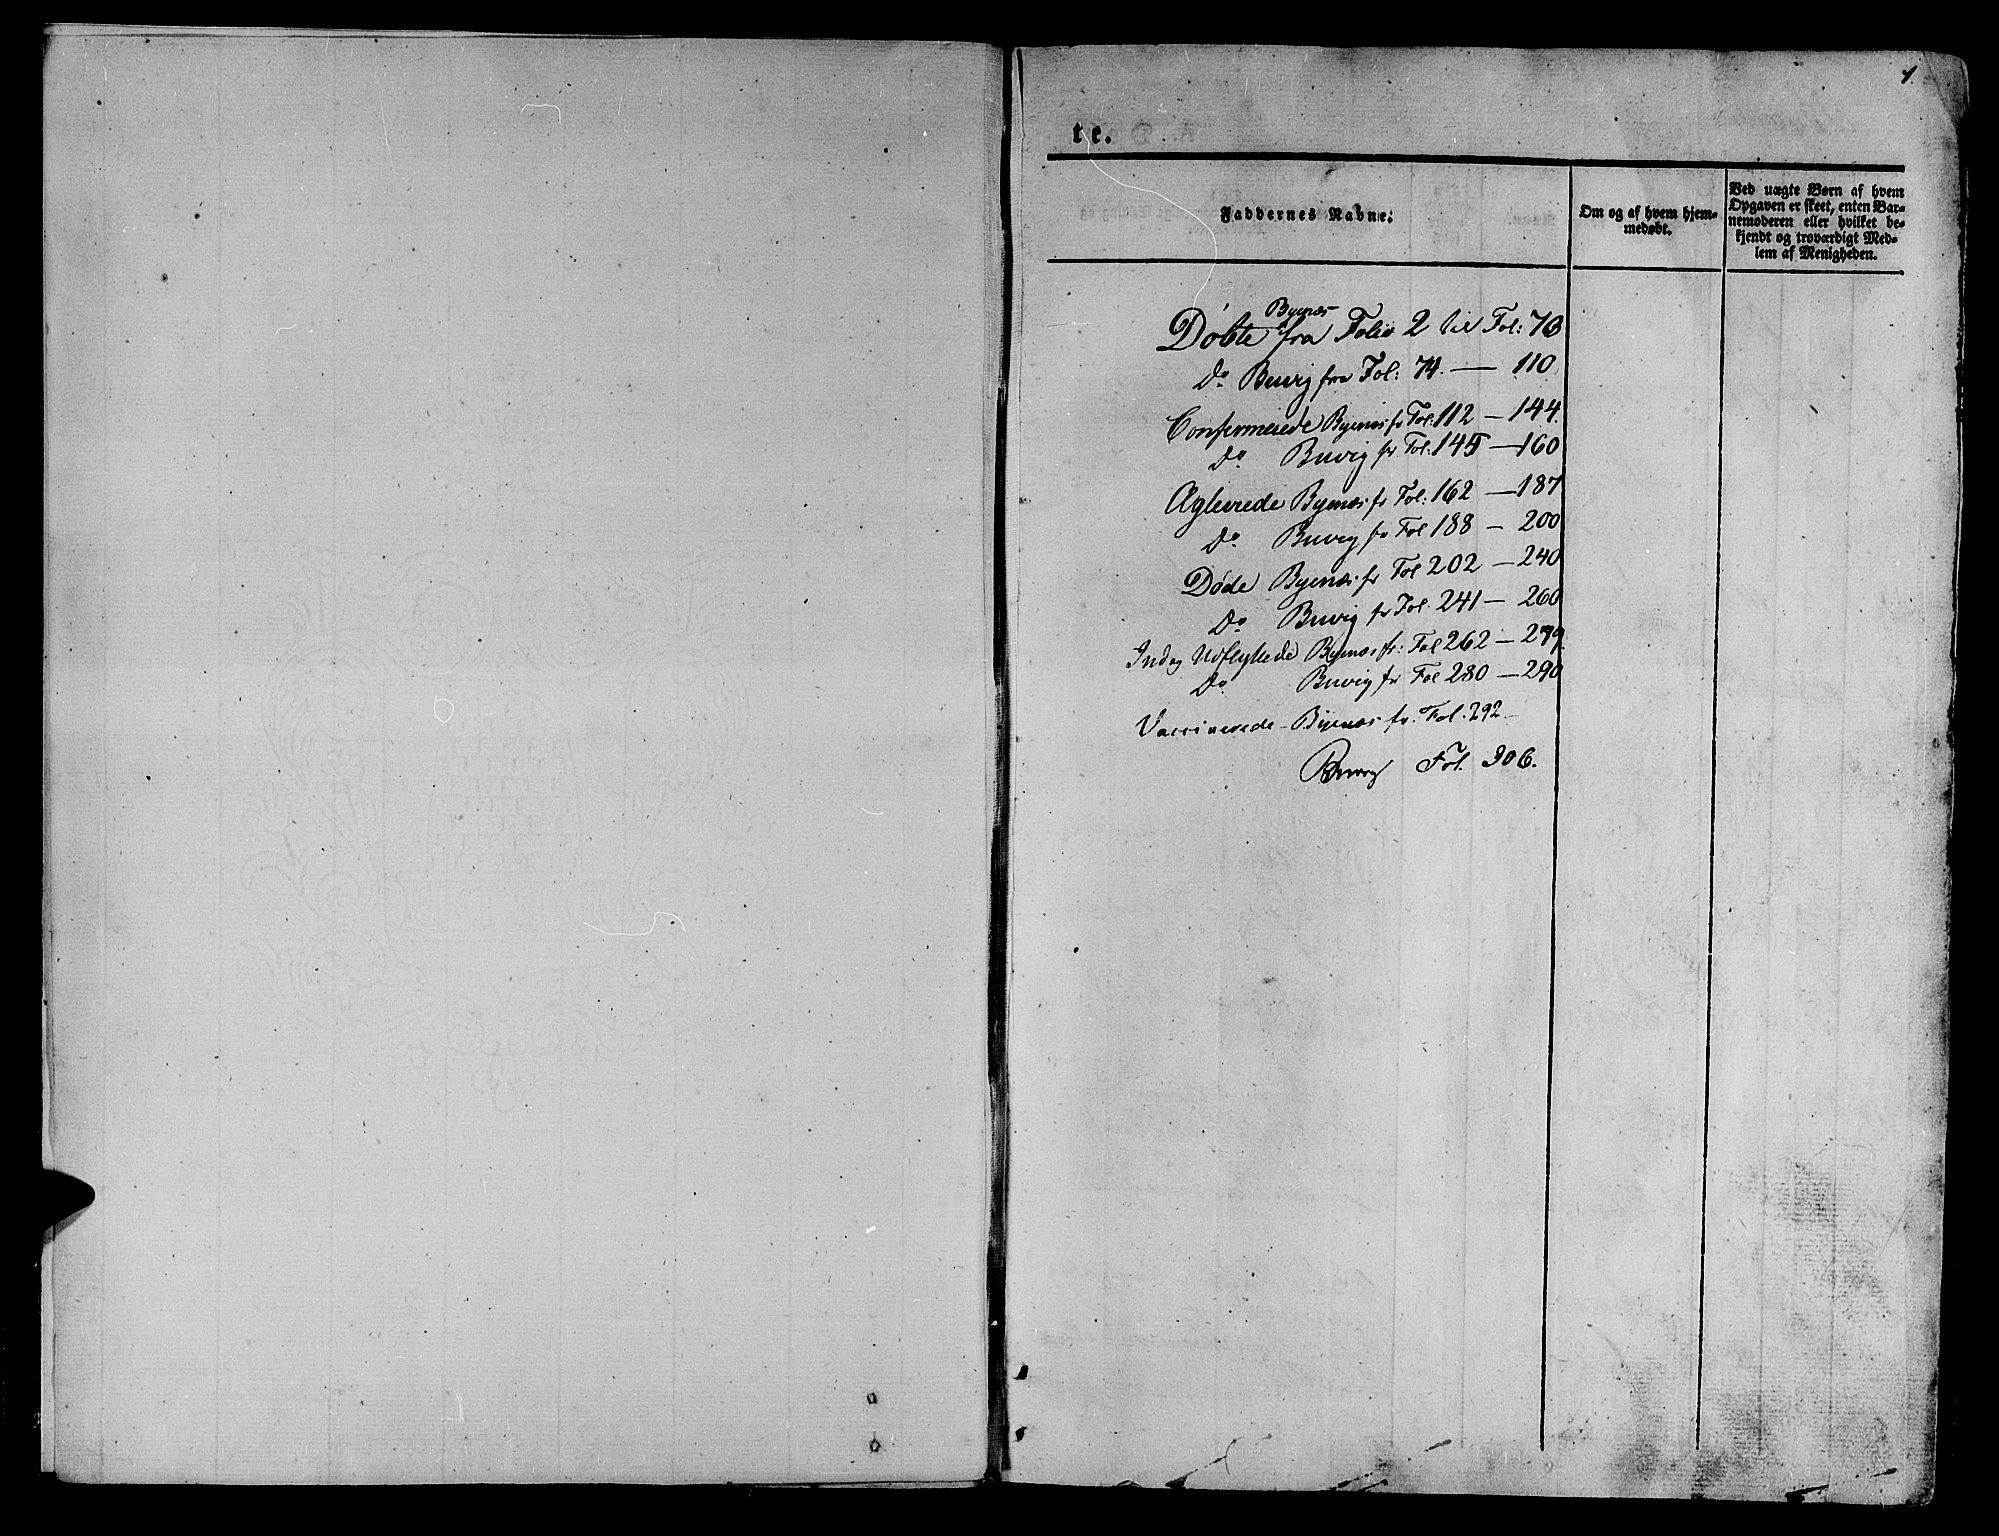 1.
te.
Faddernes Navne.
Om og af hvem hjem-
medøbt.
Ved uægte Børn af hvem
Opgaven er skeet, enten Bar-
nemoderen eller hvilket be-
kjendt og troværdigt Med-
lem af Menigheden.
Byenæs
Døbte fra Folio 2 til Fol: 73
Do Buvig fra Fol: 74. — 110
Confirmerede Byenæs fr Fol: 112 — 144.
Do Buvig fr Fol: 145 — 160
Ægteviede Byenæs fr Fol: 162 — 187
Do Buvig fr Fol 188 — 200
Døde Byenæs fr Fol 202 — 240
Do Buvig fr Fol. 241 — 260
Ind og Udflyttede Byenæs fr: Fol 262 — 279.
Do Buvig fr Fol 280 — 290
Vaccinerede - Byenæs fr. Fol. 292 -
Buvig Fol. 306.